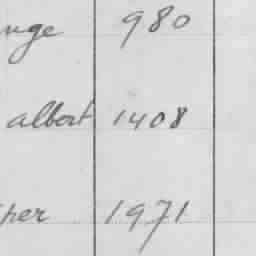 nge 980
albert 1408
per 1971